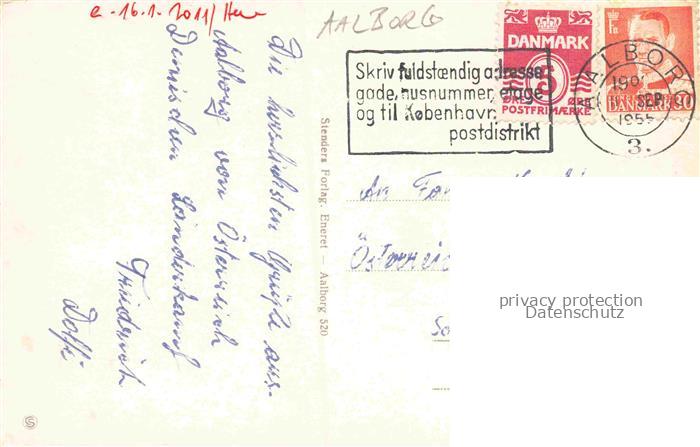 e - 16.1.2011/He
AALBORG
DANMARK
5
ØRE ØRE
POSTFRIMÆRKE
DANMARK 30
AALBORG
190
SEP.
1955
3.
Skriv fuldstændig adresse
gade, husnummer, etage
og til København:
postdistrikt
Die herzlichsten Grüße aus
Aalborg vom Österreich
Dänischen Länderkampf
Friedrich
Dolfi
Stenders Forlag. Eneret — Aalborg 520
An Fam
Österreic
privacy protection
Datenschutz
S